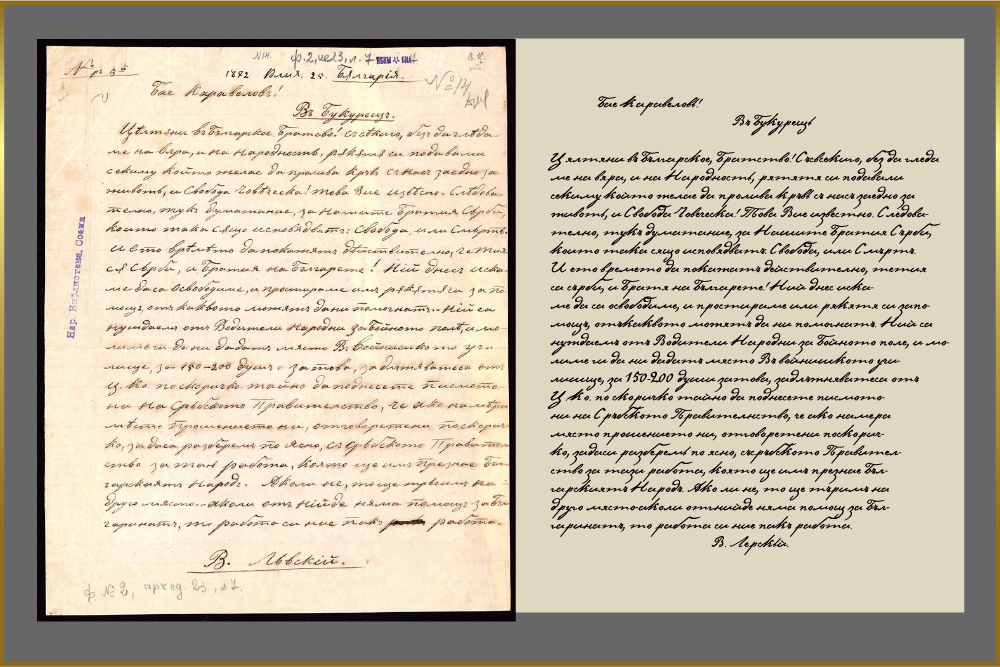 № р 5
N14. ф.2, ие23, л. 7 НБКМ ☆ БИА
1872 Юлия. 25. Бѫлгарiя.
№14
Бае Каравеловъ!
Въ Букурещъ.
Нар. Библиотека, София
Цѣльта ни въ Бѫлгарско Братство! съ секиго, безъ да глѣда-
ме на вяра, и на Народность, рѫкѫтѫ си подавами
секиму който желае да пролива кръвь съ насъ заедно за
животъ, и Свобода Човѣческа! това Вие извѣсно. Слѣдова-
телно, тукъ думатание, за Нашите Братия Сърби,
които така сѫщо исповѣдватъ: Свобода, или Смърть.
И ето врѣмѣто да покажатъ дѣйствително, че тия
сѫ Сърби, и Братия на Бѫлгарете! Нiй днесъ иска-
ме да са Освободиме, и простираме им рѫкѫтѫ си за по-
мощь, отъ каквото можатъ да ни помогнатъ. Нiй са
нуждаемъ отъ Водители Народни за Бойното полѣ, и мо-
лиме ги да ни дадѫтъ място Въ Войнишкото учи-
лище, за 150-200 души
Ц. ко. по скоричко тайно да поднесете писмото
ни на Сръбското Правителство, че ако намѣри
мѣсто прошението ни, отговоретени по скорич-
ко, за да са разберемъ по ясно, съ Сръбското Правител-
ство за тая работа, която ще им признае Бѫл-
гарскиятъ Народъ. Ако ли не, то ще търсимъ на
друго мясро. -ако ли отъ нiйде няма помощь за Бѫл-
гаринатъ, то работа си ние пакъ работа.
В. Лѣвскiй.
ф №2, арх ед. 23, л 7.
Бае Каравеловъ!
Въ Букурещъ
Цялтяни въ Българское, Братство! Съ всекиго, без да гледа
ме на вяра, и на Народность, рятятя си подавали
секиму който желае да пролива кръвъ съ насъ заедно за
животъ, и Свобода Човеческа! Това Вие известно. Следова-
телно, тукъ думатание, за Нашите Братия Сърби,
които така сящо исповядватъ Свобода, или Смърть.
И ето времето да покажатъ действително, че тия
са сърби, и Братя на Българете! Ний днес иска-
ме да си освободиме, и простираме или рякятя си запо-
мощъ, откаквото можатъ да ни помогнатъ. Ний са
нуждаем отъ Водители Народни за бойното поле, и мо
лиме ги да ни дадатъ място Въ войнишкото учи
лище, за 150-200 души затова, задлъжняватеса отъ
Ц ко. по скоричко тайно да поднесете писмото
ни на Сръбското Правителнство, че ако намера
място прошението ни, отговоретени поскорич-
ко, за даси разберемъ по ясно, съ сръбското Правител-
ство за тази работа, която ще имъ презнае Бъл-
гарскиятъ Народъ. Ако ли не, то ще търимъ на
друго място ако ли отъ нийде няма помощ за Бъл-
гаринатъ, то работа си ние пакъ работа.
В. Лерскiй.